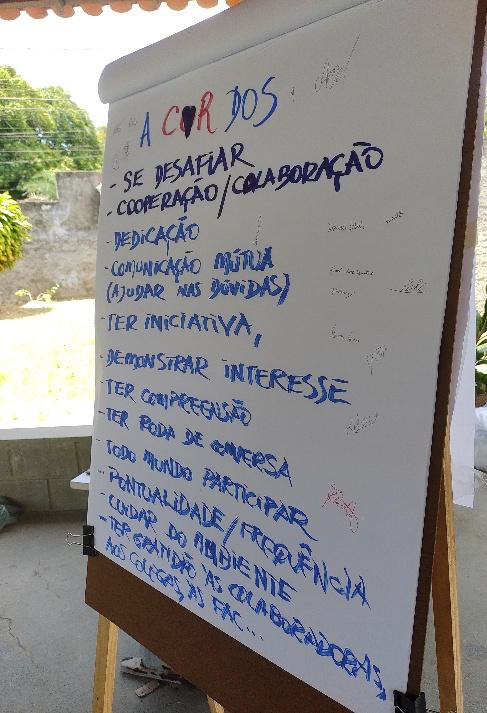 A CORDOS
- SE DESAFIAR
- COOPERAÇÃO/COLABORAÇÃO
- DEDICAÇÃO
- COMUNICAÇÃO MÚTUA
(AJUDAR NAS DÚVIDAS)
- TER INICIATIVA,
- DEMONSTRAR INTERESSE
- TER COMPREENSÃO
- TER RODA DE CONVERSA
- TODO MUNDO PARTICIPAR
- PONTUALIDADE/FREQUÊNCIA
- CUIDAR DO AMBIENTE
- TER GRATIDÃO ÀS COLABORADORAS,
AOS COLEGAS, AS FAC...